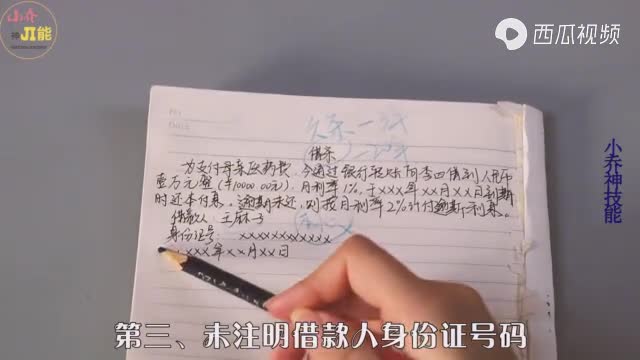 小乔
神刀能
西瓜视频
欠条
借条
为支付母亲医药费，今通过银行转账向李四借到人民币
壹万元整（¥10000.00元），月利率1%，于xxx年xx月xx日到期
时还本付息。逾期未还，则按月利率2%计付逾期利息。
借款人 王麻子
身份证号：xxxxxxxxxxx
xxx年xx月xx日
小乔神技能
第三、未注明借款人身份证号码